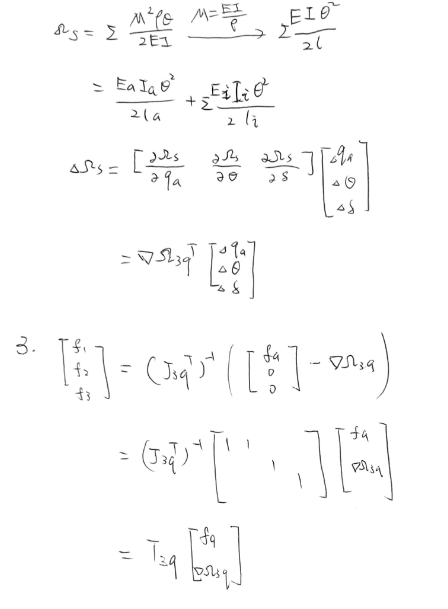 Ωs = Σ M²ρθ / 2EI  M = EI/ρ →  Σ EIθ² / 2l
= EaIaθ² / 2la + Σ EiIiθ² / 2li
ΔΩs = [ ∂Ωs/∂qa  ∂Ωs/∂θ  ∂Ωs/∂δ ] [ Δqa  Δθ  Δδ ]
= ∇Ω3qᵀ [ Δqa  Δθ  Δδ ]
3. [ f1  f2  f3 ] = (J3qᵀ)⁻¹ ( [ fa  0  0 ] - ∇Ω3q )
= (J3qᵀ)⁻¹ [ 1 1  1  1 ] [ fa  ∇Ω3q ]
= T3q [ fq  ∇Ω3q ]